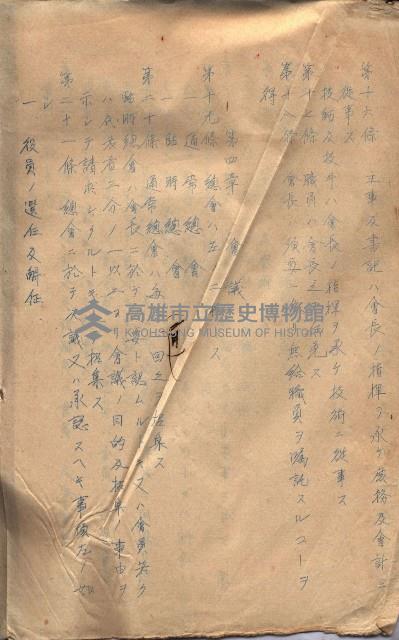 第十六條 主事及書記ハ會長ノ指揮ヲ承ケ庶務及會計ニ
從事ス
技師及技手ハ會長ノ指揮ヲ承ケ技術ニ從事ス
第十七條 職員ハ會長之ヲ任免ス
第十八條 會長ハ無給職員ヲ囑託スルコトヲ
得
第四章 會議
第十九條 總會ハ左ノ二
一 通常總會
一 臨時總會
第二十條 通常總會ハ每 回之ヲ招集ス
臨時總會ハ會長ニ於テ必要ト認ムル 又ハ會員若ク
ハ代表者二分ノ一以上ヨリ會議ノ目的及 事由ヲ
示シテ請求シタルトキ 招集ス
第二十一條 總會ニ於テ決議又ハ承認スヘキ事項左ノ如
シ
一 役員ノ選任及解任
高雄市立歷史博物館
KAOHSIUNG MUSEUM OF HISTORY